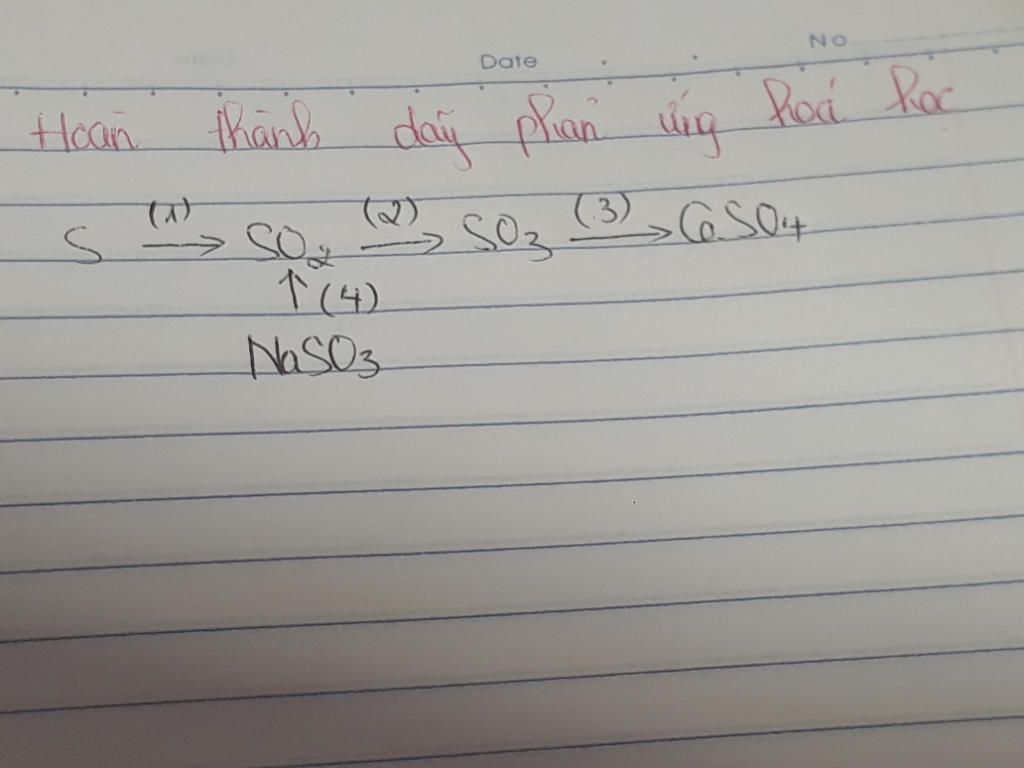 Date No
Hoàn thành dãy phản ứng hoá học
S (1)→ SO2 (2)→ SO3 (3)→ CaSO4
↑ (4)
NaSO3